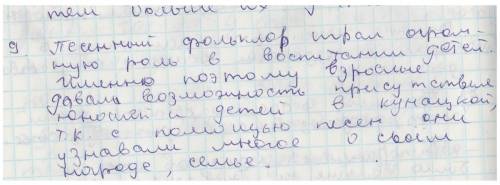 тем больше их
9. Песенный фольклор играл огром-
ную роль в воспитании детей.
Именно поэтому взрослые
давали возможность присутствия
юношей и детей в кунацкой,
т.к. с помощью песен они
узнавали многое о своём
народе, семье.